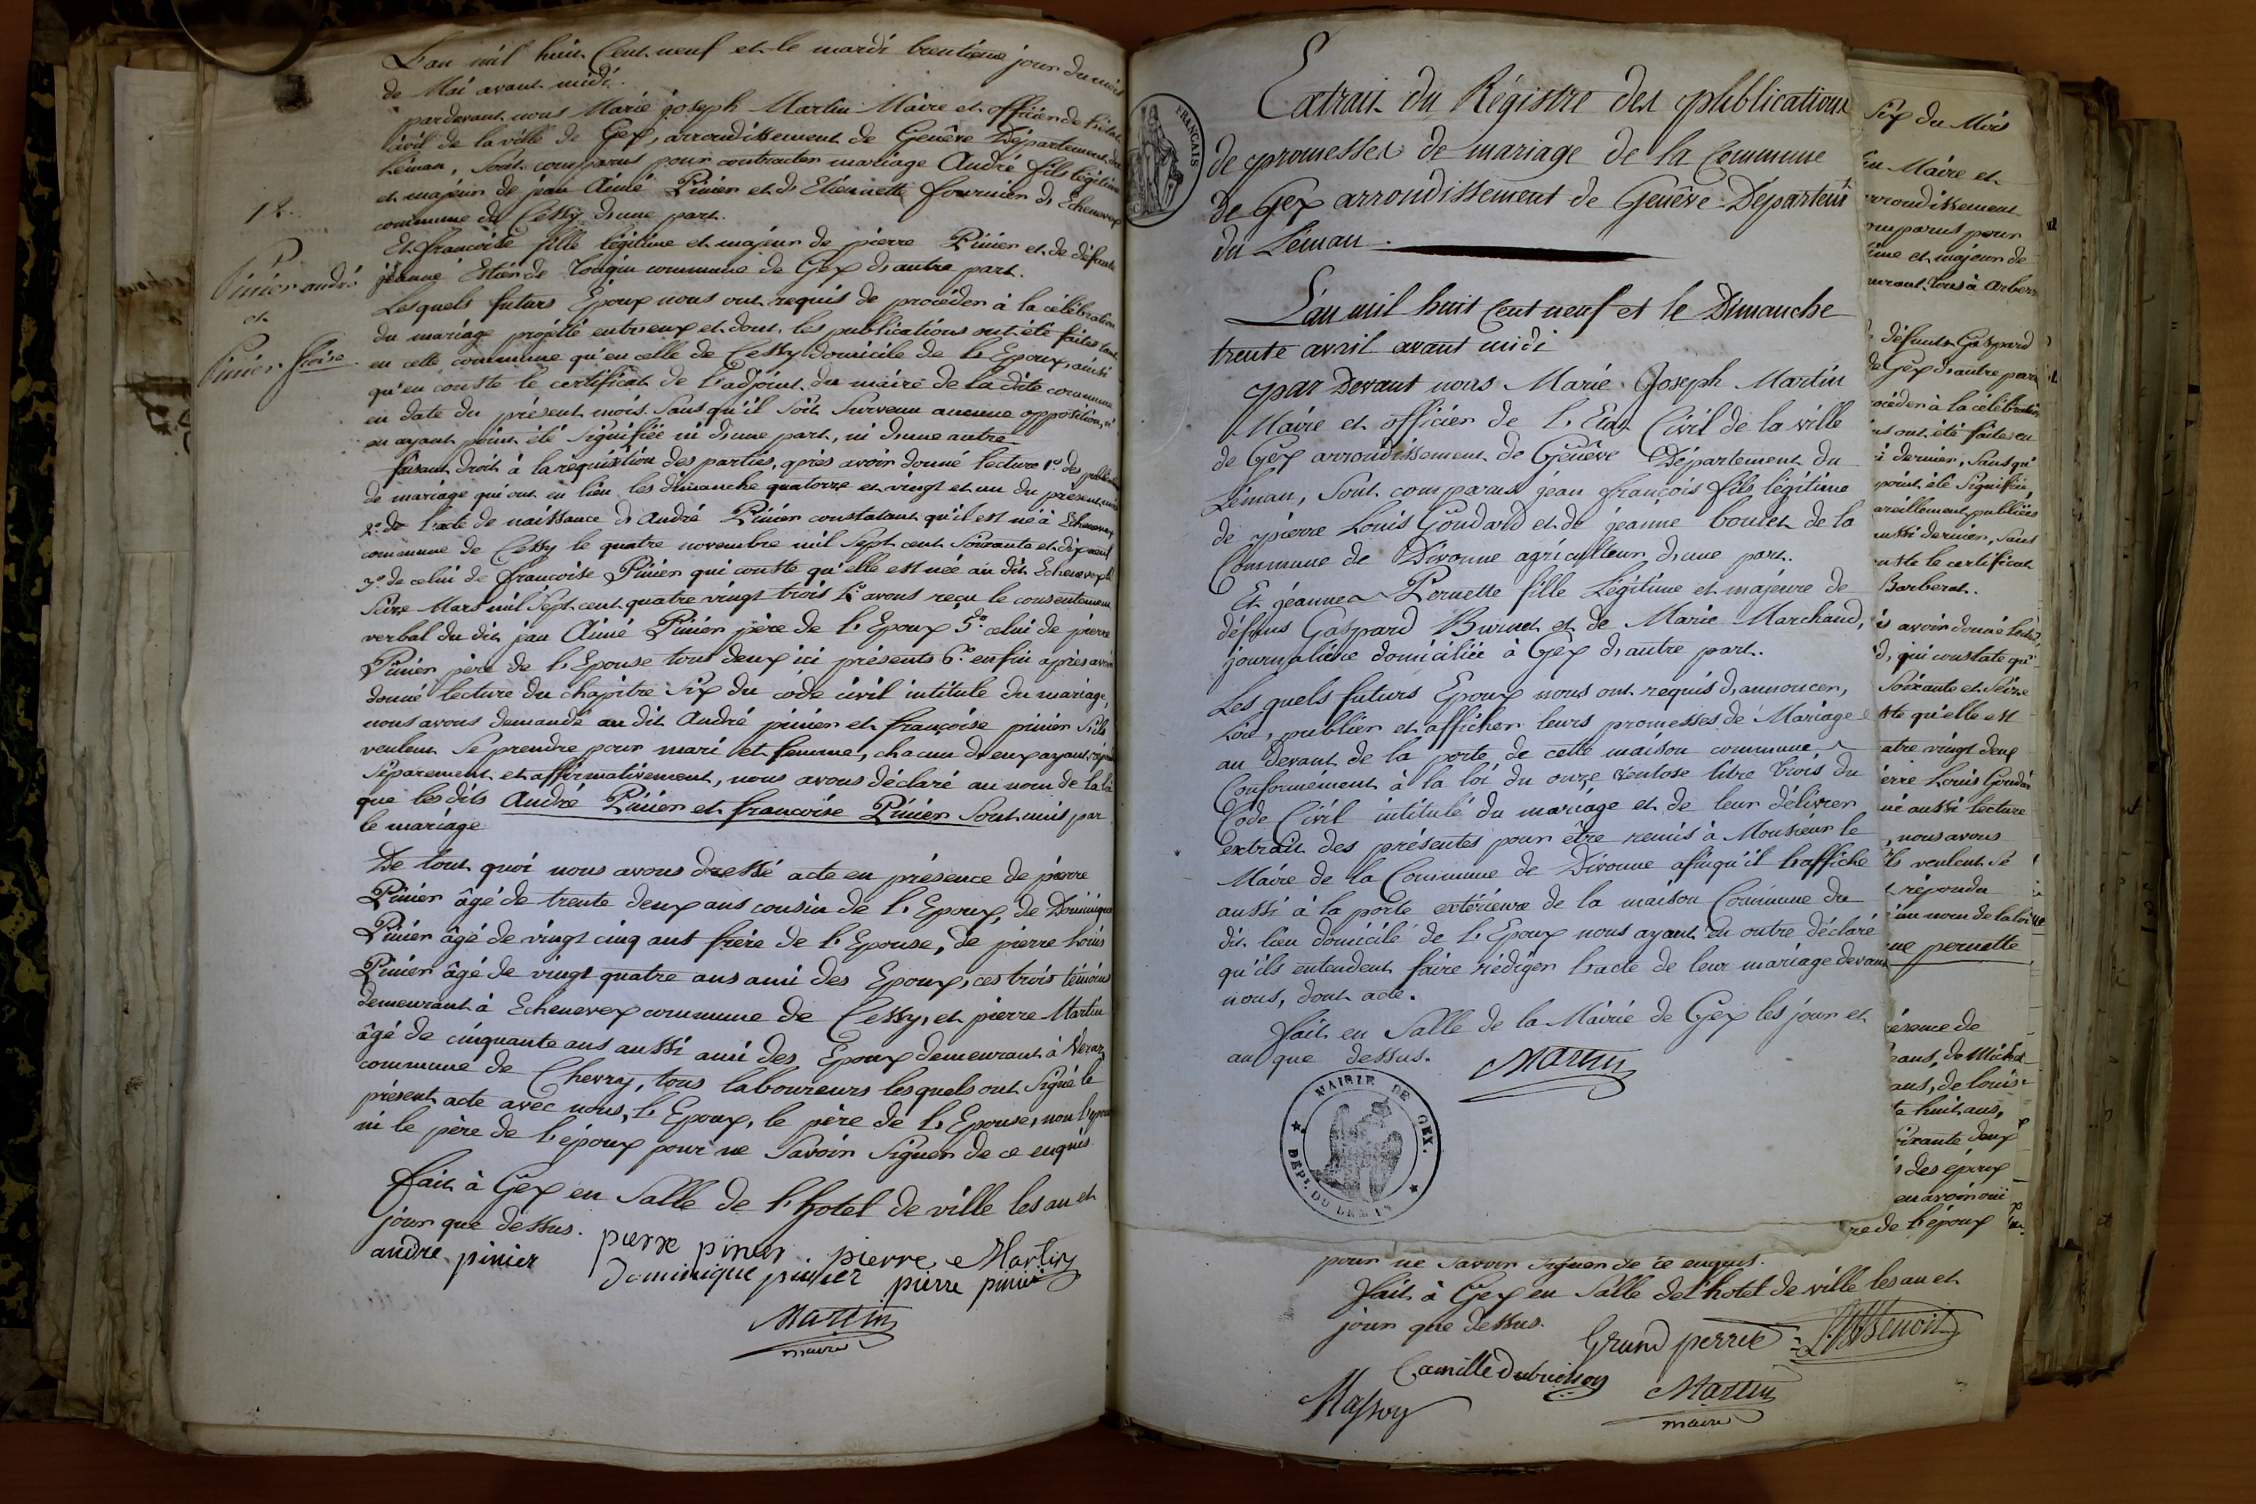 L'an mil huit Cent neuf et le mardi trentième jour du mois
de Mai avant midi.
pardevant nous Marie joseph Martin Maire et officier de l'état
Civil de la ville de Gex, arrondissement de Genêve Département du
Léman, Sont comparus pour contracter mariage André fils légitime
et majeur de jean Aimé Pinier et de Etiennette fournier de Echenevex
commune de Cessy d'une part.
Et francoise fille légitime et majeur de pierre Pinier et de défunte
jeanne Estier de Tougin commune de Gex d'autre part.
Lesquels futurs Epoux nous ont requis de procéder à la célébration
du mariage projetté entr'eux et dont les publications ont été faites tant
en cette commune qu'en celle de Cessy domicile de l'Epoux, ainsi
qu'en conste le certificat de l'adjoint du maire de la dite commune
en date du présent mois. Sans qu'il Soit Survenu aucune opposition, ni
en ayant point été Signifiée ni d'une part, ni d'une autre
faisant droit à la réquisition des parties, après avoir donné lecture 1º. des
de mariage qui ont eu lieu les dimanche quatorze et vingt et un du présent mois
2º. de l'acte de naissance d'André Pinier constatant qu'il est né à Echenevex
commune de Cessy le quatre novembre mil Sept cent Soixante et dix neuf
3º de celui de francoise Pinier qui conste qu'elle est née au dit Echenevex le
Seize Mars mil Sept cent quatre vingt trois 4º avons reçu le consentement
verbal du dit jean Aimé Pinier père de l'Epoux 5º. celui de pierre
Pinier père de l'Epouse tous deux ici présents 6º. enfin après avoir
donné lecture du chapitre Six du code civil intitulé du mariage,
nous avons demandé au dit André pinier et françoise pinier S'ils
veulent Se prendre pour mari et femme, chacun d'eux ayant répondu
Séparement et affirmativement, nous avons déclaré au nom de la loi
que les dits André Pinier et francoise Pinier Sont unis par
le mariage
De tout quoi nous avons dressé acte en présence de pierre
Pinier âgé de trente deux ans cousin de l'Epoux, de Dominique
Pinier âgé de vingt cinq ans frère de l'Epouse, de pierre Louis
Pinier âgé de vingt quatre ans ami des Epoux, ces trois témoins
demeurant à Echenevex commune de Cessy, et pierre Martin
âgé de cinquante ans aussi ami des Epoux demeurant à Véraz
commune de Chevry, tous laboureurs lesquels ont Signé le
présent acte avec nous, l'Epoux, le père de l'Epouse, non l'épouse
ni le père de l'époux pour ne Savoir Signer de ce enquis.
fait à Gex en Salle de l'hotel de ville les an et
jour que dessus.
andre pinier pierre pinier pierre Martin
dominique pinier pierre pinier
Martin
maire
18.
Pinier andré
et
Pinier froise
FRANCAIS
Extrait du Régistre des publications
de promesses de mariage de la Commune
de Gex arrondissement de Genêve Départemt
du Léman.
L'an mil huit Cent neuf et le Dimanche
trente avril avant midi
par Devant nous Marie Joseph Martin
Maire et officier de l'Etat Civil de la ville
de Gex arrondissement de Genêve Département du
Léman, Sont comparus jean françois fils légitime
de pierre Louis Goudard et de jeanne boulet de la
Commune de Divonne agriculteur d'une part.
Et jeanne Pernette fille légitime et majeure de
défunts Gaspard Burnet et de Marie Marchand,
journalière domiciliée à Gex d'autre part.
Les quels futurs Epoux nous ont requis d'annoncer,
Lire, publier et afficher leurs promesses de Mariage
au devant de la porte de cette maison commune
Conformément à la loi du onze ventose titre trois du
Code Civil intitulé du mariage et de leur délivrer
extrait des présentes pour être remis à Monsieur le
Maire de la Commune de Divonne afin qu'il l'affiche
aussi à la porte extérieure de la maison Commune du
dit lieu domicile de l'Epoux nous ayant en outre déclaré
qu'ils entendent faire rédiger l'acte de leur mariage devant
nous, dont acte.
fait en Salle de la Mairie de Gex les jour et
an que dessus. Martin
MAIRIE DE GEX.
DEPT. DU LEMAN
Six du Mois
Maire et
arrondissement
comparus pour
et majeur de
défunts Gaspard
de Gex d'autre part
procéder à la célébration
ont été faites en
dernier, Sans qu'
point été Signifiée,
pareillement publiées
aussi dernier, Sans
conste le certificat
Barberat.
avoir donné lecture
qui constate qu'
Soixante et Seize
qu'elle est
quatre vingt deux
pierre Louis Goudard
aussi lecture
nous avons
ils veulent Se
répondu
au nom de la loi
pernette
présence de
ans, de Michel
ans, de louis
huit ans,
Soixante deux
des époux
père de l'époux
pour ne Savoir Signer de ce enquis.
fait à Gex en Salle de l'hotel de ville les an et
jour que dessus.
Grand perret Benoit
Camille Dubuisson Martin
maire
Masson